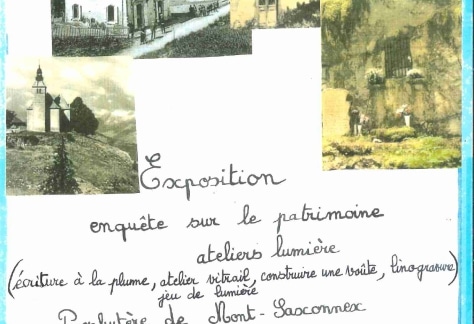 Exposition
enquête sur le patrimoine
ateliers lumière
(écriture à la plume, atelier vitrail, construire une voûte, linogravure)
jeu de lumière
Presbytère de Mont-Saxonnex